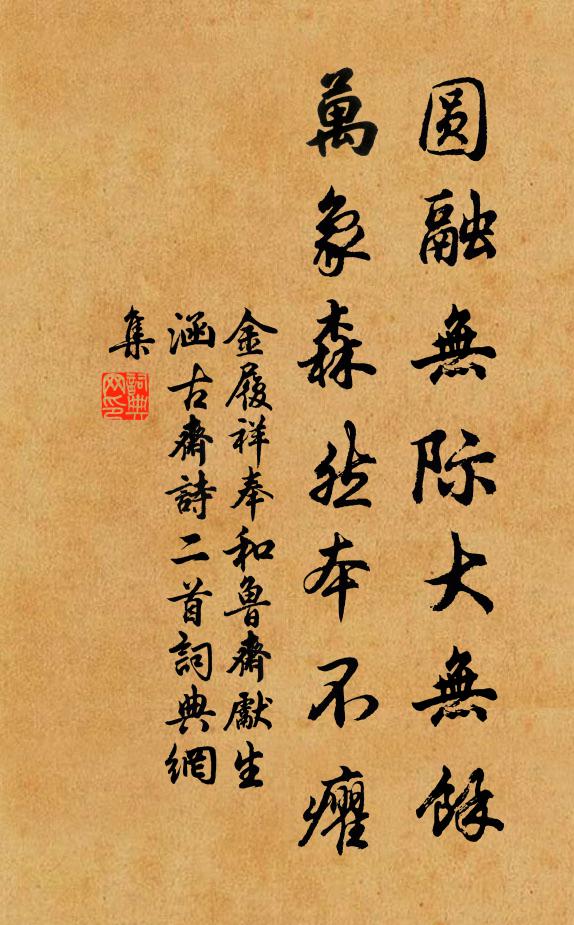 圆融無际大無餘
萬象森然本不癯
金履祥奉和魯齋獻生
涵古齋詩二首詞典網
集
詞典網印